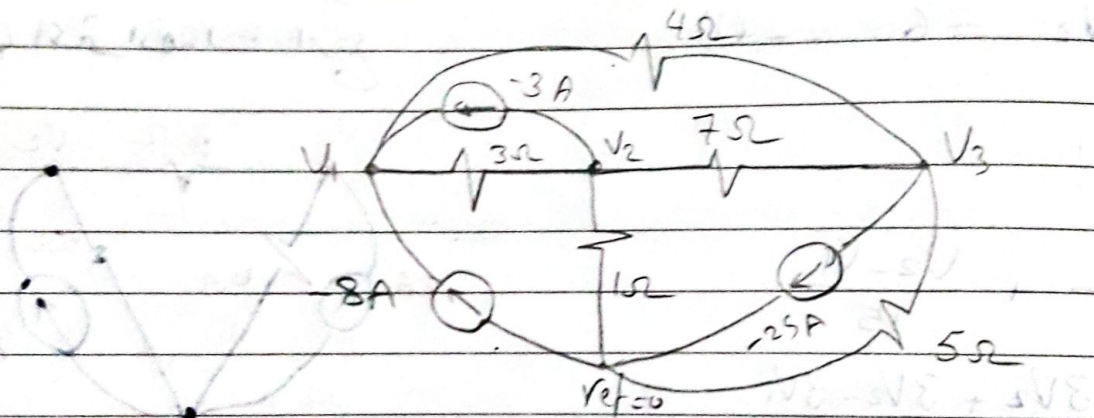 4Ω
-3A
7Ω
V1
3Ω
V2
V3
-8A
1Ω
-25A
5Ω
Vref=0